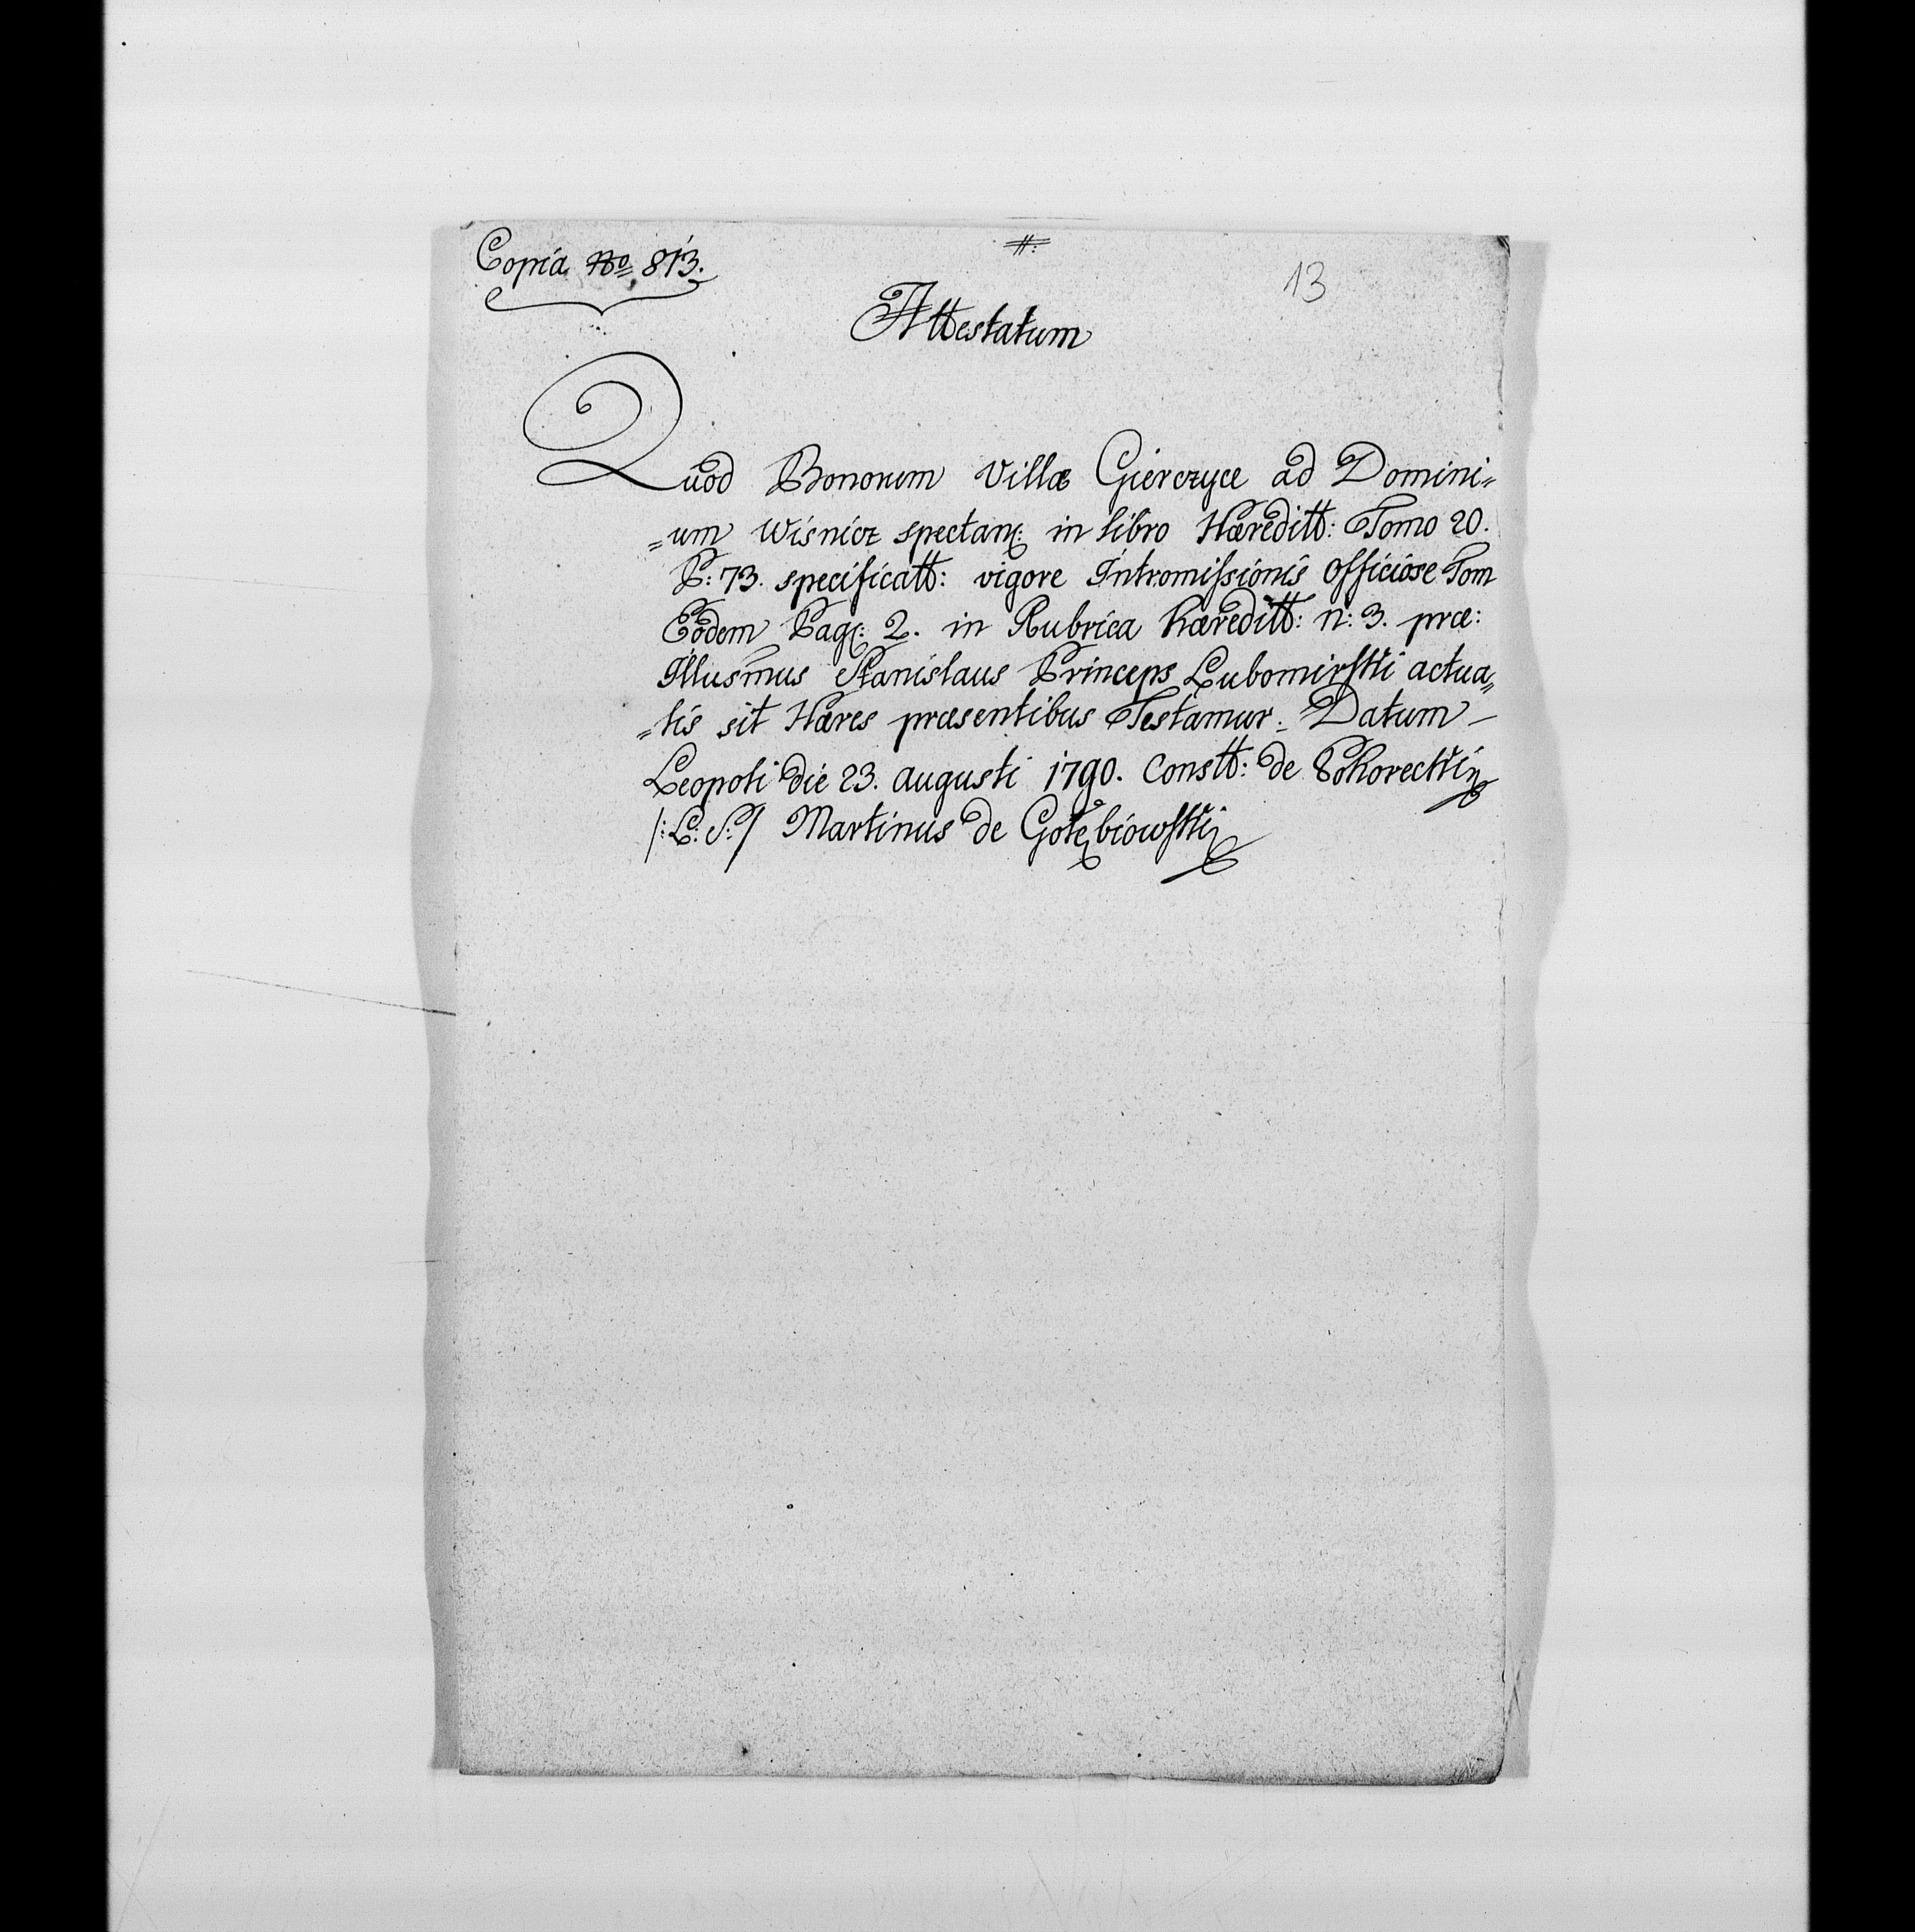 Copia No 813.
#:
13
Attestatum
Quod Bonorum Villæ Gierczyce ad Domini=
=um Wisnicz spectan: in libro Hæreditt: Tomo 20.
P: 73. specificatt: vigore Intromissionis Officiose Tom
Eodem Pag: 2. in Rubrica hæreditt: n: 3. præ:
Illusmus Stanislaus Princeps Lubomirski actua=
=lis sit Hæres præsentibus Testamur. Datum
Leopoli die 23. augusti 1790. Constt: de
/: L: S: / Martinus de Gołębiowski